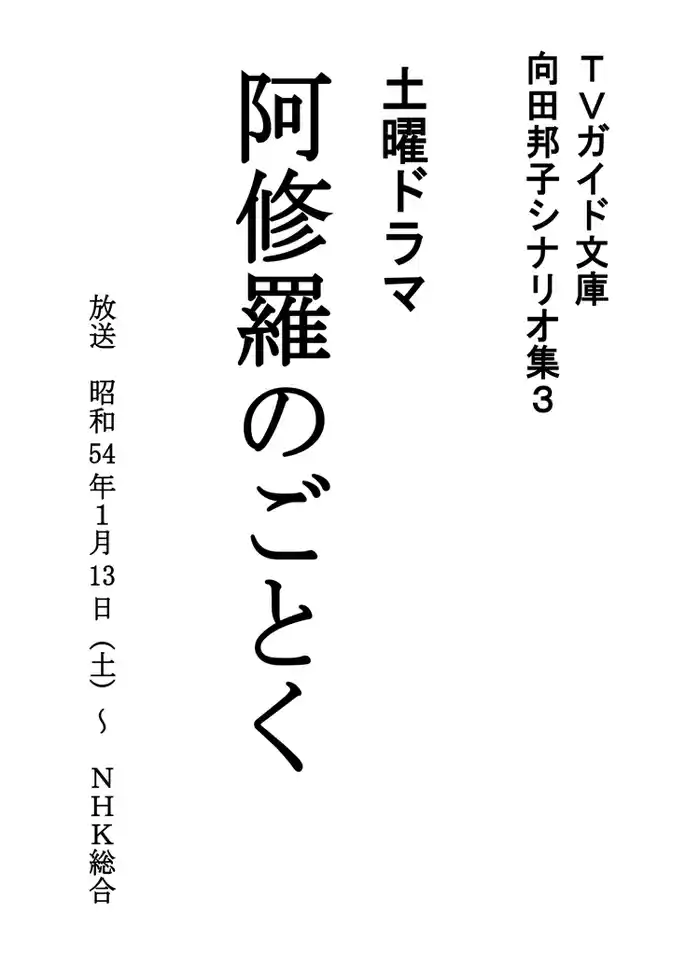 TVガイド文庫
向田邦子シナリオ集3
土曜ドラマ
阿修羅のごとく
放送　昭和54年1月13日（土）～　NHK総合